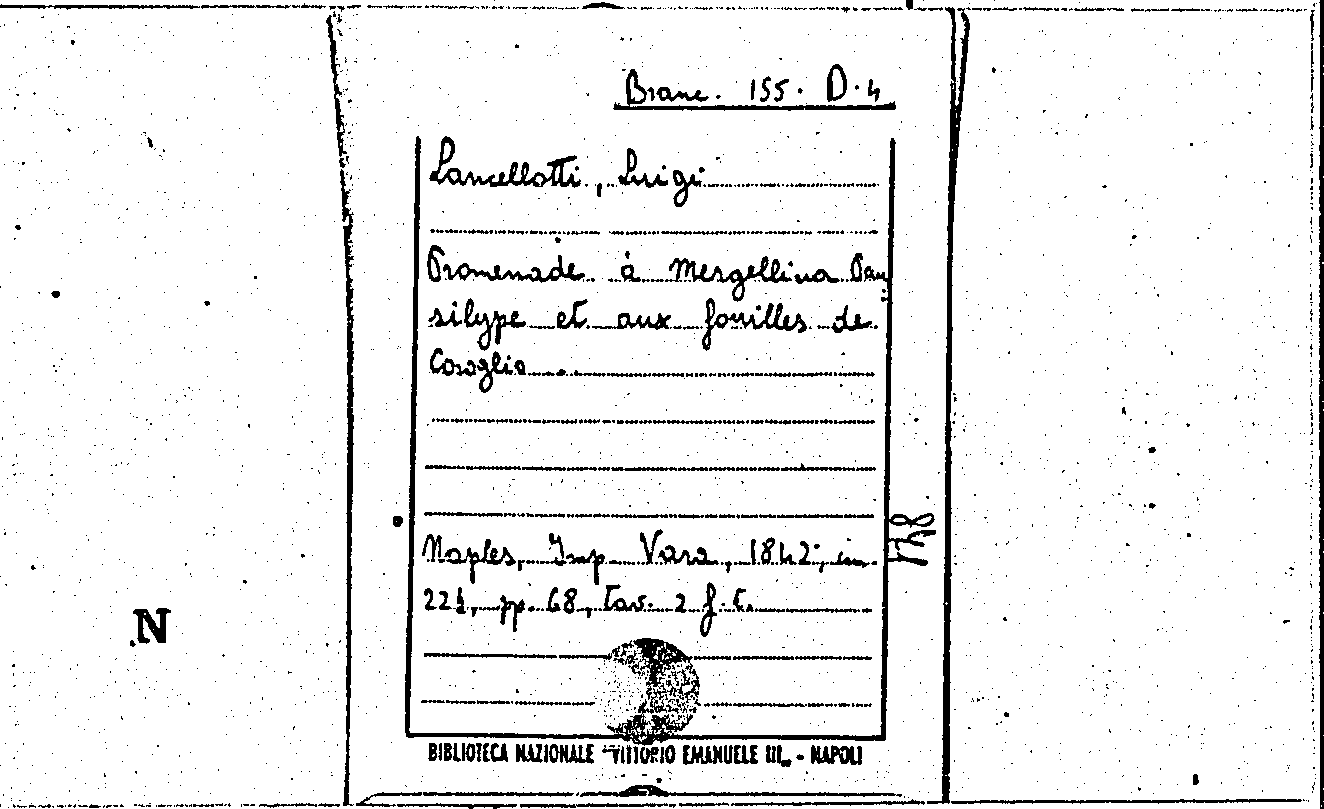 Branc. 155. D.4
Lancellotti, Luigi
Promenade à Mergellina Pau
silype et aux fouilles de
Coroglio...
Naples, Imp. Vara, 1842, in
pp. 68, tav. 2 f.t.
N
BIBLIOTECA NAZIONALE "VITTORIO EMANUELE III„ - NAPOLI